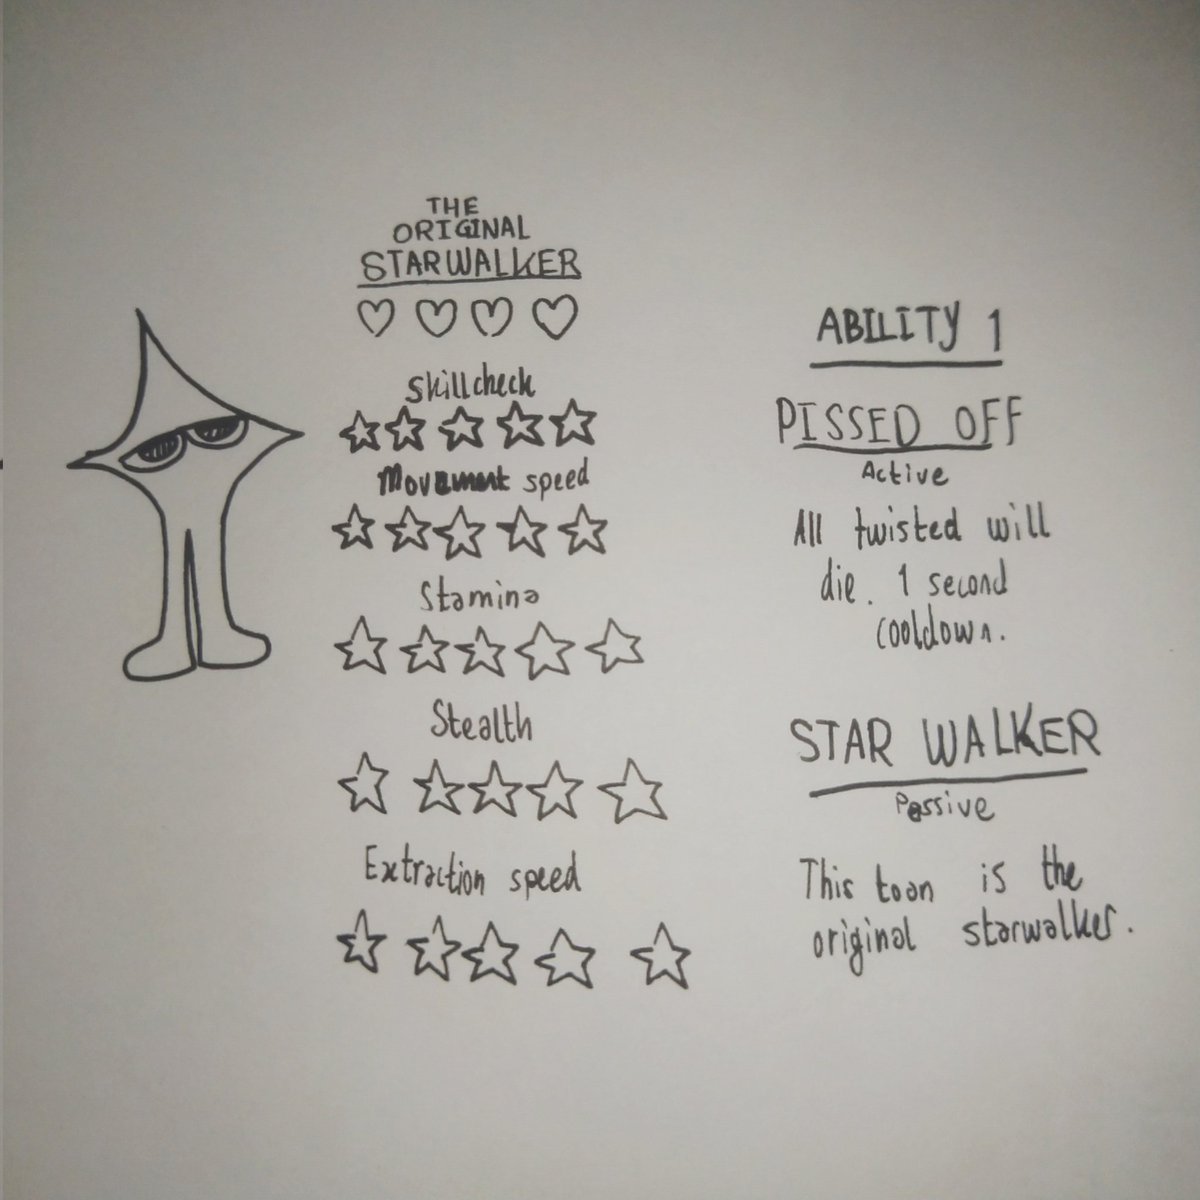 THE
ORIGINAL
STARWALKER
Skillcheck
Movement speed
Stamina
Stealth
Extraction speed
ABILITY 1
PISSED OFF
Active
All twisted will
die. 1 second
cooldown.
STAR WALKER
Passive
This toon is the
original starwalker.